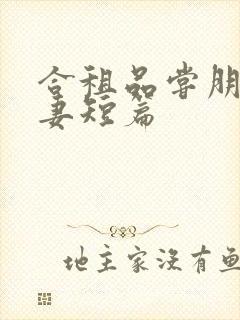 合租品尝朋
妻短篇
地主家没有鱼